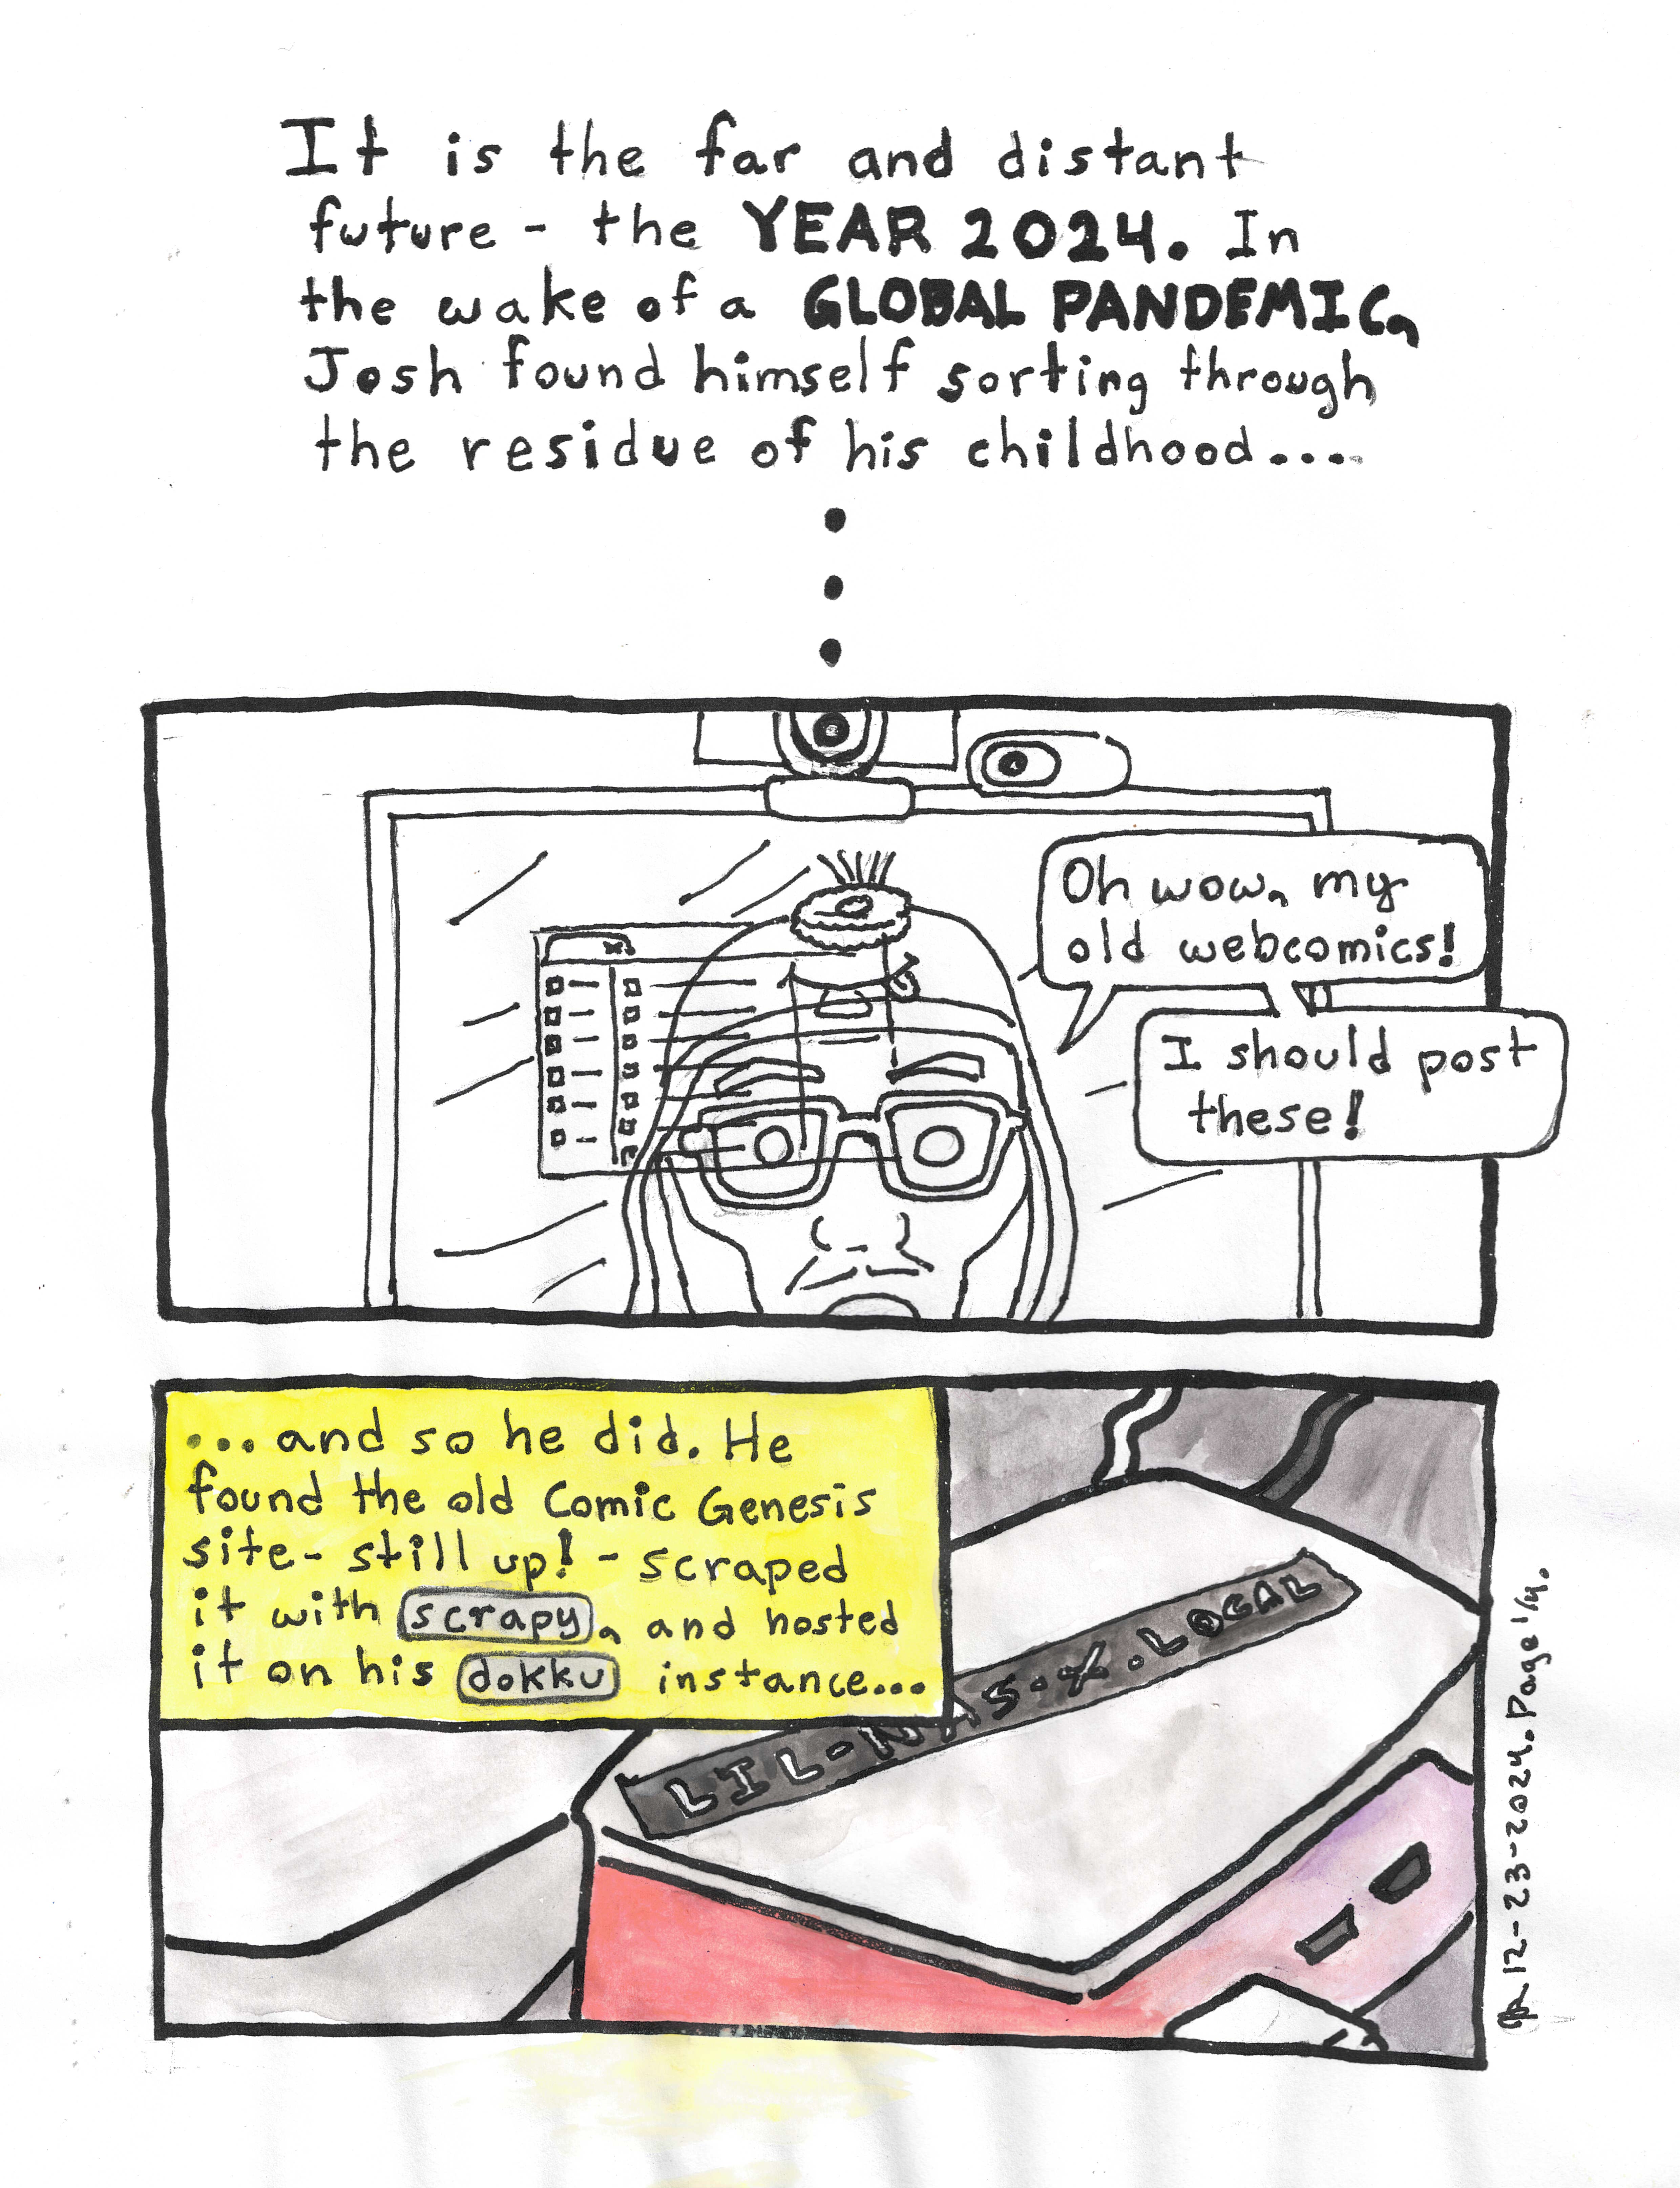 It is the far and distant
future - the YEAR 2024. In
the wake of a GLOBAL PANDEMIC,
Josh found himself sorting through
the residue of his childhood....
Oh wow, my
old webcomics!
I should post
these!
...and so he did. He
found the old Comic Genesis
site - still up! - scraped
it with scrapy, and hosted
it on his dokku instance...
LIL-NAS-X.LOCAL
12-23-2024. Page 1/4.